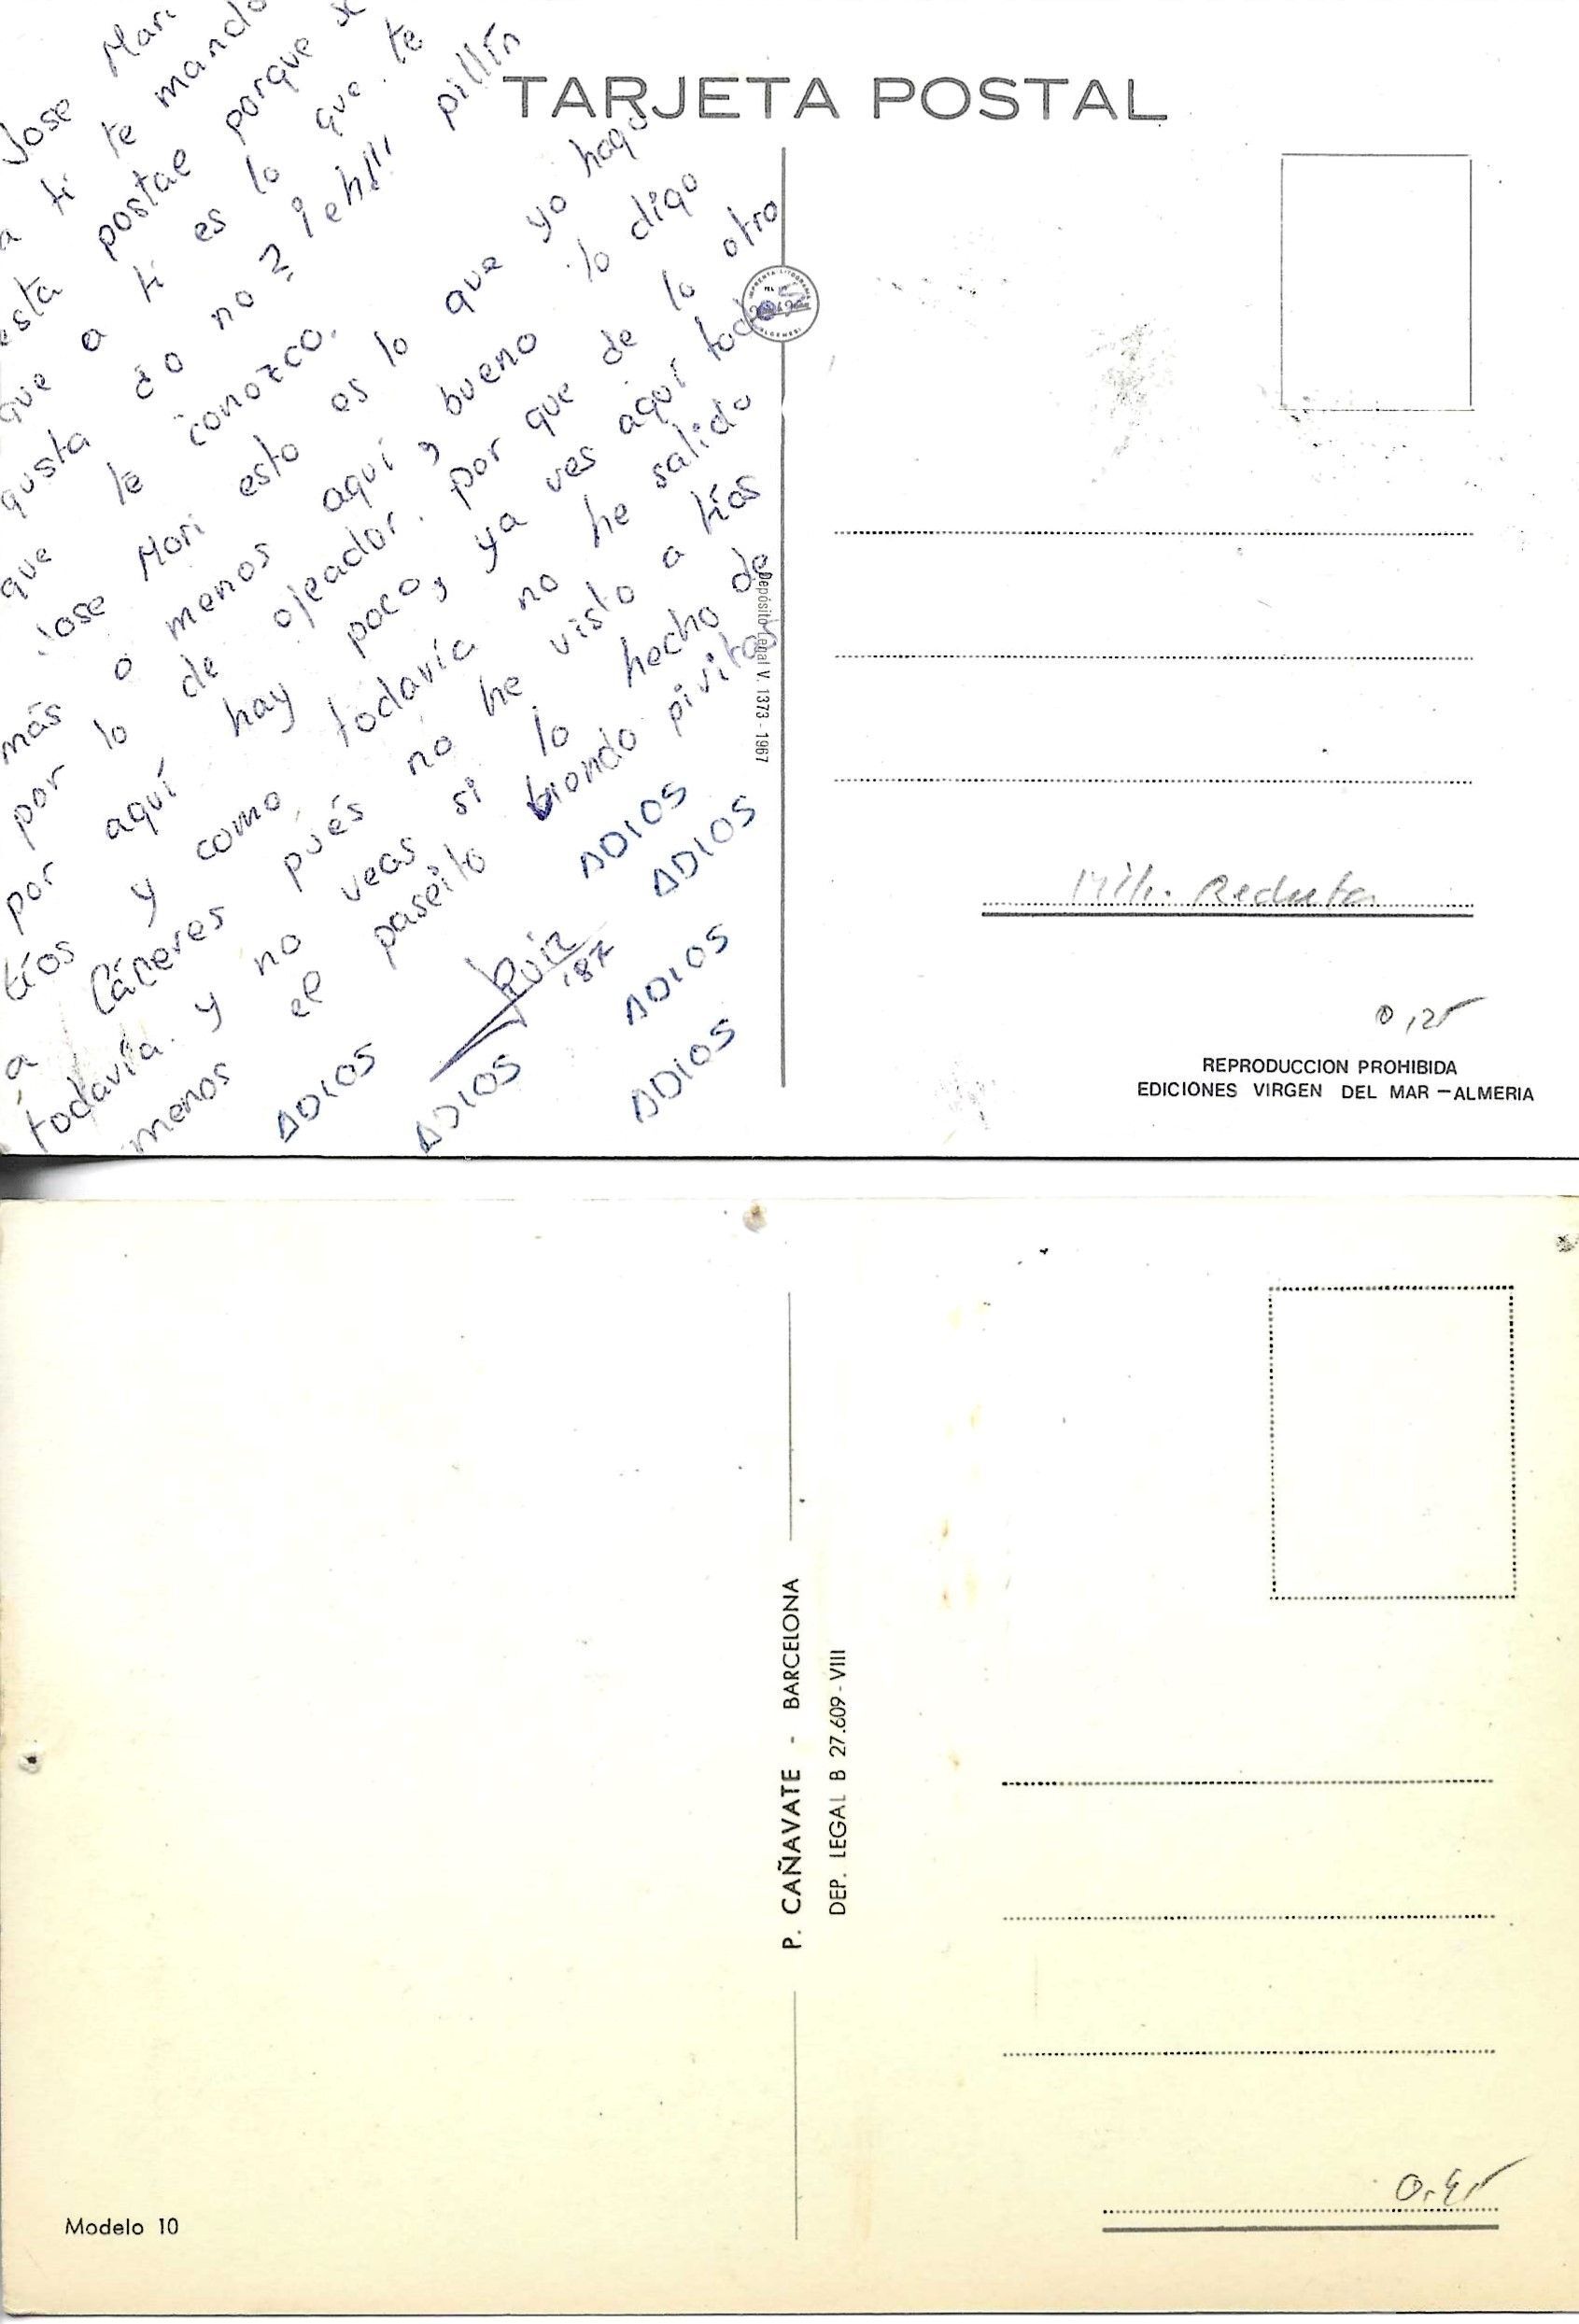 TARJETA POSTAL
Jose Mari
a ti te mando
esta postal porque se
que a ti es lo que te
gusta do no? ¡eh!!! pillín
que te conozco.
Jose Mari esto es lo que yo hago
más o menos aquí, bueno lo digo
por lo de ojeador. por que de lo otro
por aquí hay poco, ya ves aquí todos
tíos y como todavía no he salido
a Cáceres pués no he visto a tías
todavía. y no veas si lo hecho de
menos el paseito viendo pivitas
ADIOS
ADIOS
ADIOS
ADIOS
ADIOS
ADIOS
Ruiz
'87
Depósito Legal V. 1373 - 1967
0,25
REPRODUCCION PROHIBIDA
EDICIONES VIRGEN DEL MAR - ALMERIA
P. CAÑAVATE - BARCELONA
DEP. LEGAL B 27.609 - VIII
Modelo 10